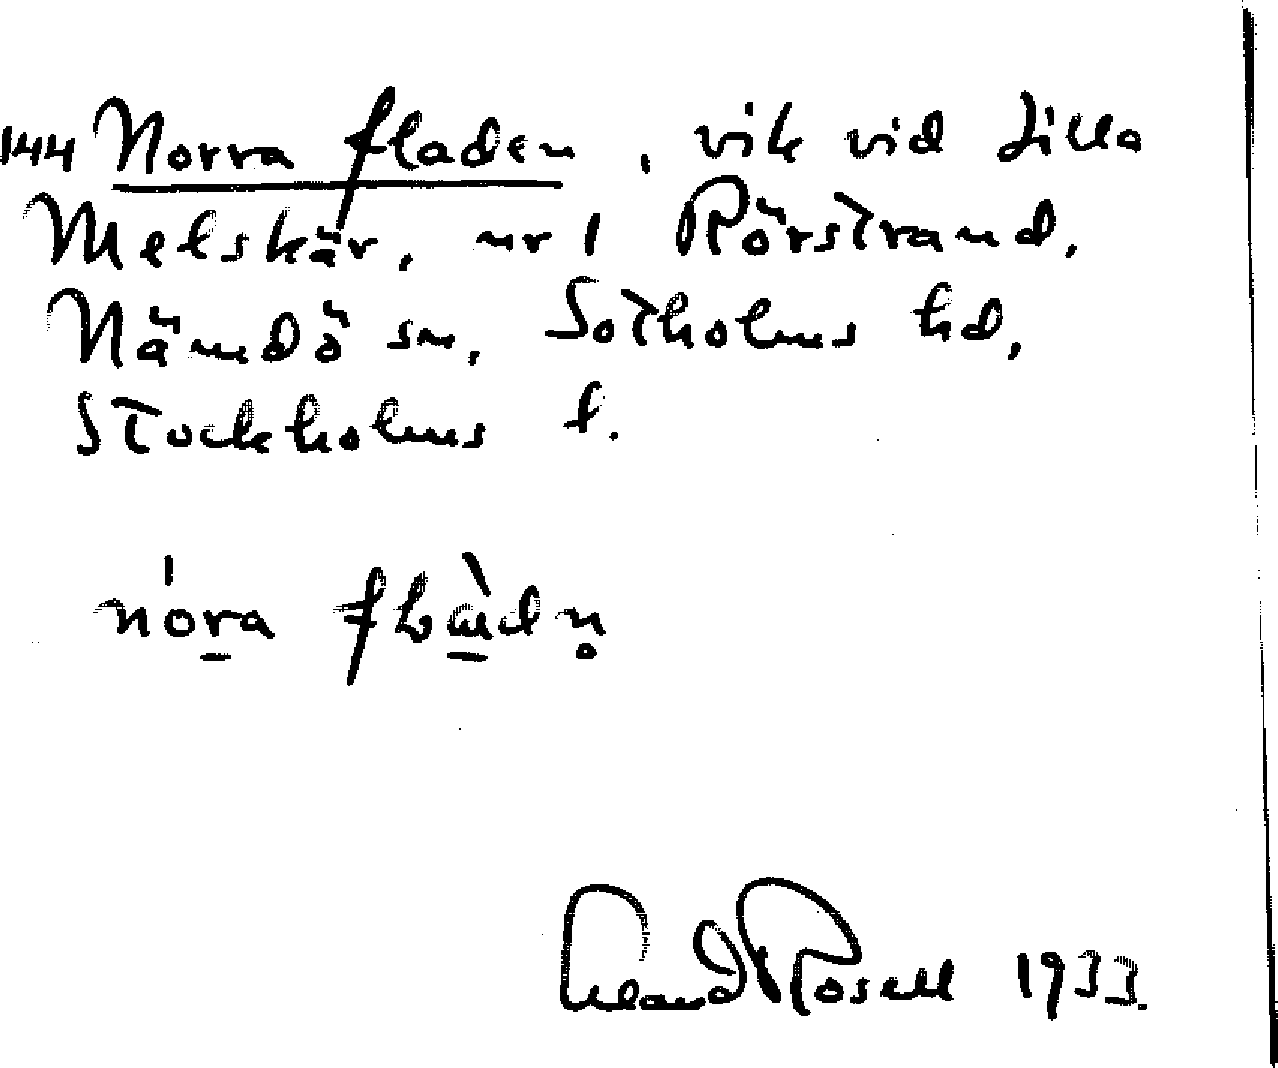 144 Norra fladen, vik vid Lilla
Melskär, nr 1 Rörstrand,
Nämdö sn, Sotholms hd,
Stockholms l.
nóra flàdn̥
Erland Rosell 1933.